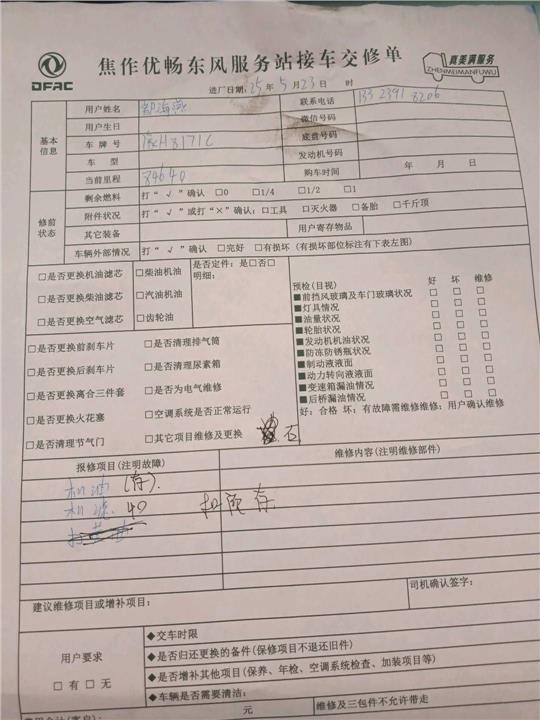 DFAC
焦作优畅东风服务站接车交修单
真美满服务
ZHENMEIMANFUWU
进厂日期:25年5月23日 时
基本信息
用户姓名
联系电话
用户生日
微信号码
车牌号
底盘号码
车型
发动机号码
当前里程 84640
购车时间 年 月 日
修前状态
剩余燃料 打"√"确认 □0 □1/4 □1/2 □1
附件状况 打"√"或打"×"确认:□工具 □灭火器 □备胎 □千斤顶
其它装备
用户寄存物品
车辆外部情况 打"√"确认 □完好 □有损坏(有损坏部位标注有下表左图)
□是否更换机油滤芯 □柴油机油
□是否更换柴油滤芯 □汽油机油
□是否更换空气滤芯 □齿轮油
是否定件:是□否□
明细:
预检(目视) 好 坏 维修
■前挡风玻璃及车门玻璃状况 □ □ □
■灯具情况 □ □ □
■油量状况 □ □ □
■轮胎状况 □ □ □
■发动机机油状况 □ □ □
■防冻防锈瓶状况 □ □ □
■制动液液面 □ □ □
■动力转向液液面 □ □ □
■变速箱漏油情况 □ □ □
■后桥漏油情况 □ □ □
好:合格 坏:有故障需维修维修:用户确认维修
□是否更换前刹车片 □是否清理排气筒
□是否更换后刹车片 □是否清理尿素箱
□是否更换离合三件套 □是否为电气维修
□是否更换火花塞 □空调系统是否正常运行
□是否清理节气门 □其它项目维修及更换
报修项目(注明故障)
维修内容(注明维修部件)
机油 (存).
机滤. 40
司机确认签字:
建议维修项目或增补项目:
用户要求
□有 □无
◆交车时限
◆是否归还更换的备件(保修项目不退还旧件)
◆是否增补其他项目(保养、年检、空调系统检查、加装项目等)
◆车辆是否需要清洁:
元
维修及三包件不允许带走